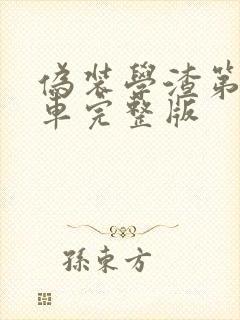 偽裝學渣第
車完整版
孫東方